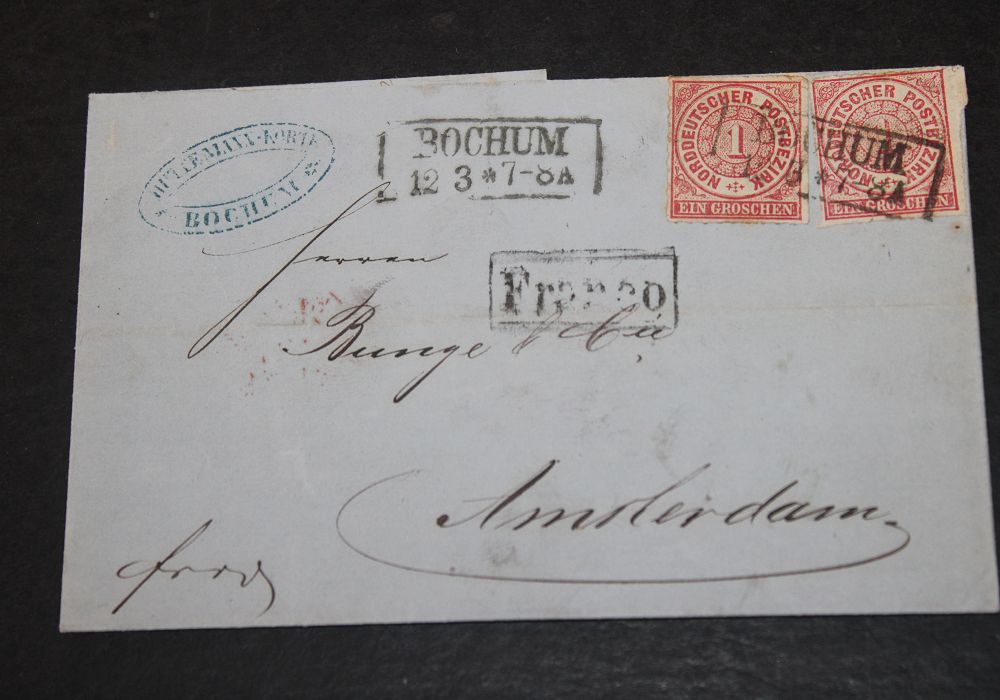 BOCHUM
BOCHUM
12 3 * 7-8A
NORDDEUTSCHER POSTBEZIRK
1
EIN GROSCHEN
DEUTSCHER POSTBEZIRK
1
EIN GROSCHEN
BOCHUM
* 7-8A
Franco
Herren
Bunge & Cie
Amsterdam